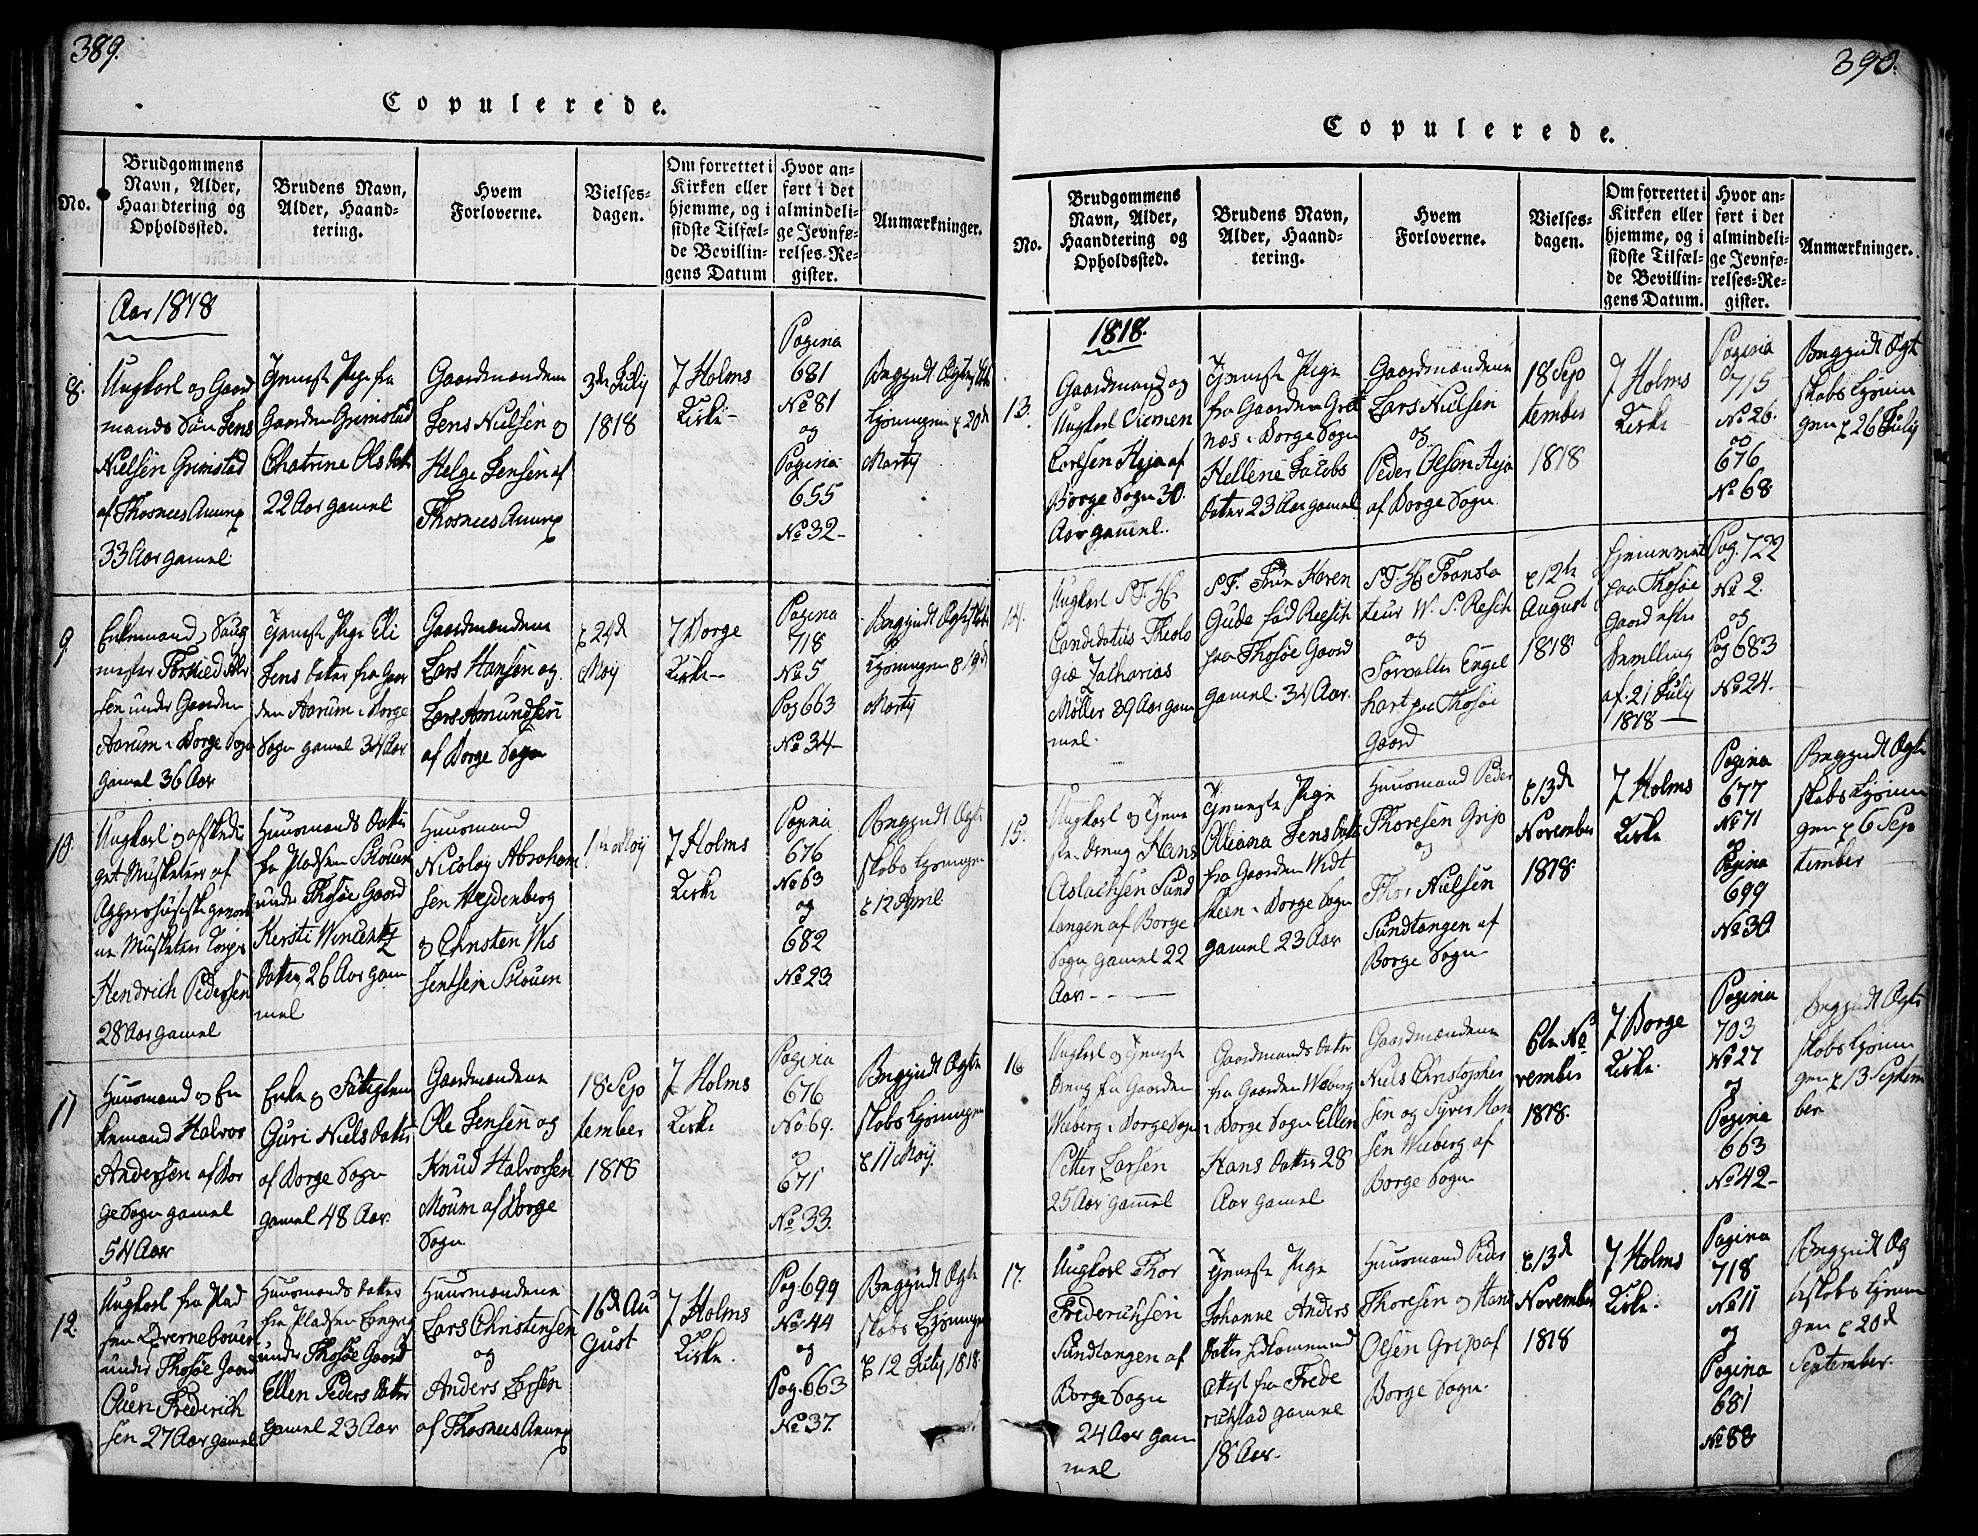 389.
Copulerede.
No.
Brudgommens
Navn, Alder,
Haandtering og
Opholdssted.
Brudens Navn,
Alder, Haand-
tering.
Hvem
Forloverne.
Vielses-
dagen.
Om forrettet i
Kirken eller
hjemme, og i
sidste Tilfæl-
de Bevillin-
gens Datum
Hvor an-
ført i det
almindeli-
ge Jevnfø-
relses-Re-
gister.
Anmærkninger.
Aar 1818
8.
Ungkarl og Gaard
mands Søn Jens
Nielsen Grimstad
af Thosnees Annex
33 Aar gamel
Tjeneste Pige fra
Gaarden Grimstad
Chatrine Ols datter
22 Aar gamel
Gaardmændene
Jens Nielsen og
Helge Jensen af
Thosnees Annex
3de July
1818
I Holms
Kirke
Pagina
681
No 81
og
Pagina
655
No 32
Begyndt Ægteskabs
Lysningen d 20de
Marty
9
Enkemand og Saug
mester Torkied
sen under Gaarden
Aarum i Borge Sogn
gamel 36 Aar
Tjeneste Pige Eli
Jens datter fra Gaar
den Aarum i Borge
Sogn gamel 34 Aar
Gaardmændene
Lars Hansen og
Lars Amundsen
af Borge Sogn
d 24de
May
I Borge
Kirke
Pagina
718
No 5
Pag 663
No 34
Begyndt Ægteskabs
Lysningen d 19de
Marty
10
Ungkarl og afskedi
get Musketeer af
Aggershusiske gevorv
ne Musketeer Corps
Hendrich Pedersen
28 Aar gamel
Huusmands datter
fra Pladsen Skouen
under Thosøe Gaard
Kersti Wincentz
datter 26 Aar gam
mel
Huusmand
Nicolay Abraham
sen Heydenberg
og Christen Wis
sentsen Skouen
1te May
I Holms
Kirke
Pagina
676
No 63
og
682
No 23
Begyndt Ægte
skabs Lysningen
d 12 April
11
Huusmand og En
kemand Halvor
Andersen af Bor
ge Sogn gamel
54 Aar
Enke og
Guri Niels datter
af Borge Sogn
gamel 48 Aar
Gaardmændene
Ole Jensen og
Knud Halvorsen
Moum af Borge
Sogn
18 Sep
tember
1818
I Holms
Kirke
Pagina
676
No 69.
og
671
No 33.
Begyndt Ægte
skabs Lysningen
d 11 May.
12.
Ungkarl fra Plad
sen Qvernebouen
under Thosøe Gaard
Ouen Frederich
sen 27 Aar gamel
Huusmands datter
fra Pladsen
under Thosøe Gaard
Ellen Peders datter
gamel 23 Aar
Huusmændene
Lars Christensen
og
Anders Larsen
af Thosnees Annex
16de Au
gust
I Holms
Kirke.
Pag. 699
No 44
og
Pag. 663
No 37.
Begyndt Ægte
skabs Lysningen
d 12 July 1818.
390.
Copulerede.
No.
Brudgommens
Navn, Alder,
Haandtering og
Opholdssted.
Brudens Navn,
Alder, Haand-
tering.
Hvem
Forloverne.
Vielses-
dagen.
Om forrettet i
Kirken eller
hjemme, og i
sidste Tilfæl-
de Bevillin-
gens Datum.
Hvor an-
ført i det
almindeli-
ge Jevnfø-
relses-Re-
gister.
Anmærkninger.
1818.
13.
Gaardmand og
Ungkarl Clemen
Carlsen Heja af
Borge Sogn 30.
Aar gamel.
Tjeneste Pige
fra Gaarden Græt
næs i Borge Sogn
Hellene Jacobs
datter 23 Aar gamel
Gaardmændene
Lars Nielsen
og
Peder Olsen Heja
af Borge Sogn
18 Sep
tember
1818
I Holms
Kirke
Pagina
715
No 26.
og
676
No 68
Begyndt Ægte
skabs Lysnin
gen d 26 July
14.
Ungkarl S.T. Hr.
Candidatus Theolo
giæ Zacharias
Møller 39 Aar gam
mel.
S.T. Frue Karen
Gude fød Resch
paa Thosøe Gaard
gamel 34 Aar.
S.T. Hr Transla
teur W. P. Resch
og
Forvalter Engel
hart paa Thosøe
Gaard
d 12te
August
1818
Hjemmeviet
paa Thosøe
Gaard efter
Bevilling
af 21 July
1818
Pag. 722
No 2.
og
Pag 683
No 24.
15.
Ungkarl og Tjene
ste dreng Hans
Aslachsen Sund
tangen af Borge
Sogn gamel 22
Aar
Tjeneste Pige
Olleana Jens datter
fra Gaarden Widt
steen i Borge Sogn
gamel 23 Aar
Huusmand Peder
Thoresen Grip
og
Thor Nielsen
Sundtangen af
Borge Sogn
d 13de
November
1818.
I Holms
Kirke
Pagina
677
No 71
og
Pagina
699
No 30
Begyndt Ægte
skabs Lysnin
gen d 6 Sep
tember
16
Ungkarl og Tjeneste
Dreng fra Gaarden
Wieberg i Borge Sogn
Petter Larsen
25 Aar gamel
Gaardmands datter
fra Gaarden Wieberg
i Borge Sogn Ellen
Hans datter 28
Aar gamel
Gaardmændene
Niels Christopher
sen og Syver Han
sen Wieberg af
Borge Sogn
6te No
vember
1818.
I Borge
Kirke.
Pagina
703
No 27
og
Pagina
663
No 42
Begyndt Ægte
skabs Lysnin
gen d 13 Septem
ber
17.
Ungkarl Thor
Frederichsen
Sundtangen af
Borge Sogn
24 Aar gam
mel
Tjeneste Pige
Johanne Anders
datter hidkommend
Attest fra Frede
richstad gamel
18 Aar.
Huusmand Peder
Thoresen og Hans
Olsen Grip af
Borge Sogn.
d 13de
November
1818
I Holms
Kirke.
Pagina
718
No 11
og
Pagina
681
No 88
Begyndt Æg
teskabs Lysnin
gen d 20de
September.